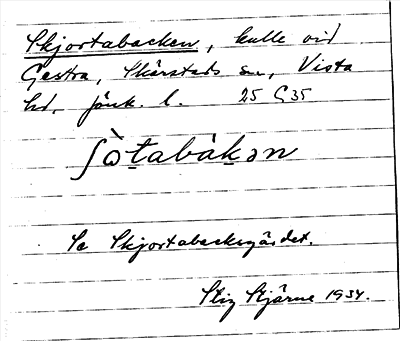 Skjortabacken, kulle vid
Gestra, Skärstads sn, Vista
hd, Jönk. l. 25 G 35
ʃòtabàkən
Se Skjortabacksgärdet.
Stig Stjärne 1934.